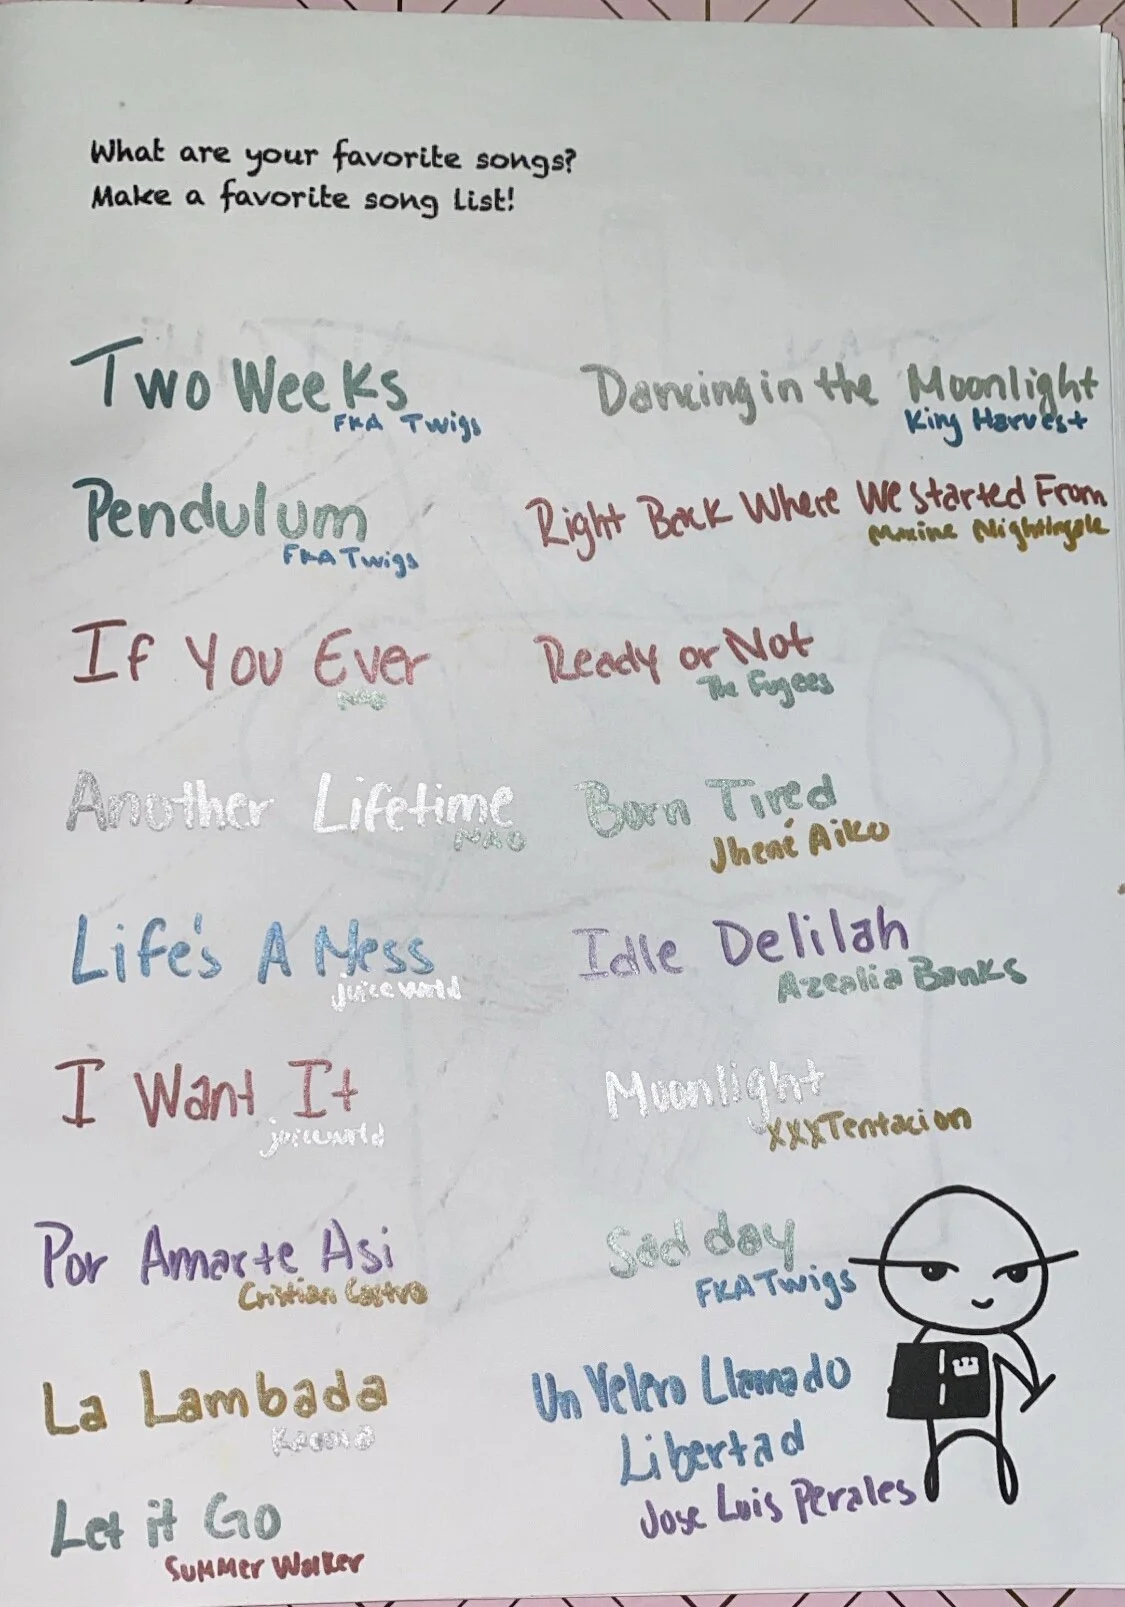 What are your favorite songs?
Make a favorite song list!
Two Weeks
FKA Twigs
Pendulum
FKA Twigs
If You Ever
NAO
Another Lifetime
NAO
Life's A Mess
juice wrld
I Want It
juice wrld
Por Amarte Asi
Cristian Castro
La Lambada
Kaoma
Let it Go
Summer Walker
Dancing in the Moonlight
King Harvest
Right Back Where We Started From
Maxine Nightingale
Ready or Not
The Fugees
Born Tired
Jhené Aiko
Idle Delilah
Azealia Banks
Moonlight
XXXTentacion
Sad day
FKA Twigs
Un Velero Llamado
Libertad
Jose Luis Perales